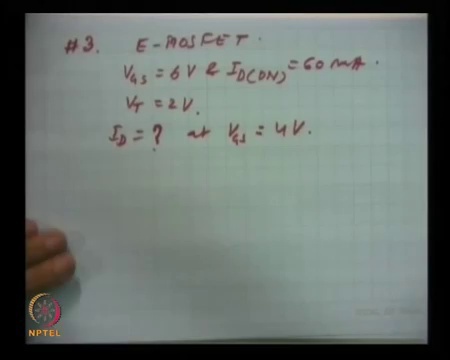 #3. E-MOSFET.
V_GS = 6V & I_D(ON) = 60 mA.
V_T = 2V.
I_D = ? at V_GS = 4V.
NPTEL